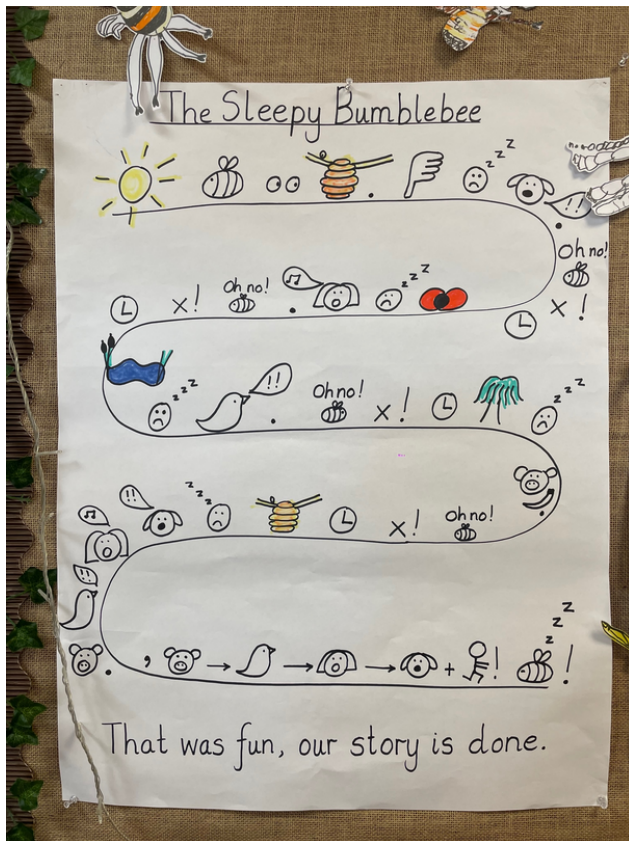 The Sleepy Bumblebee
z z z
!!
Oh no!
x!
z z z
Oh no!
x!
z z z
!!
Oh no!
x!
z z z
Oh no!
x!
z z z
!!
!!
z z z
, + ! !
That was fun, our story is done.